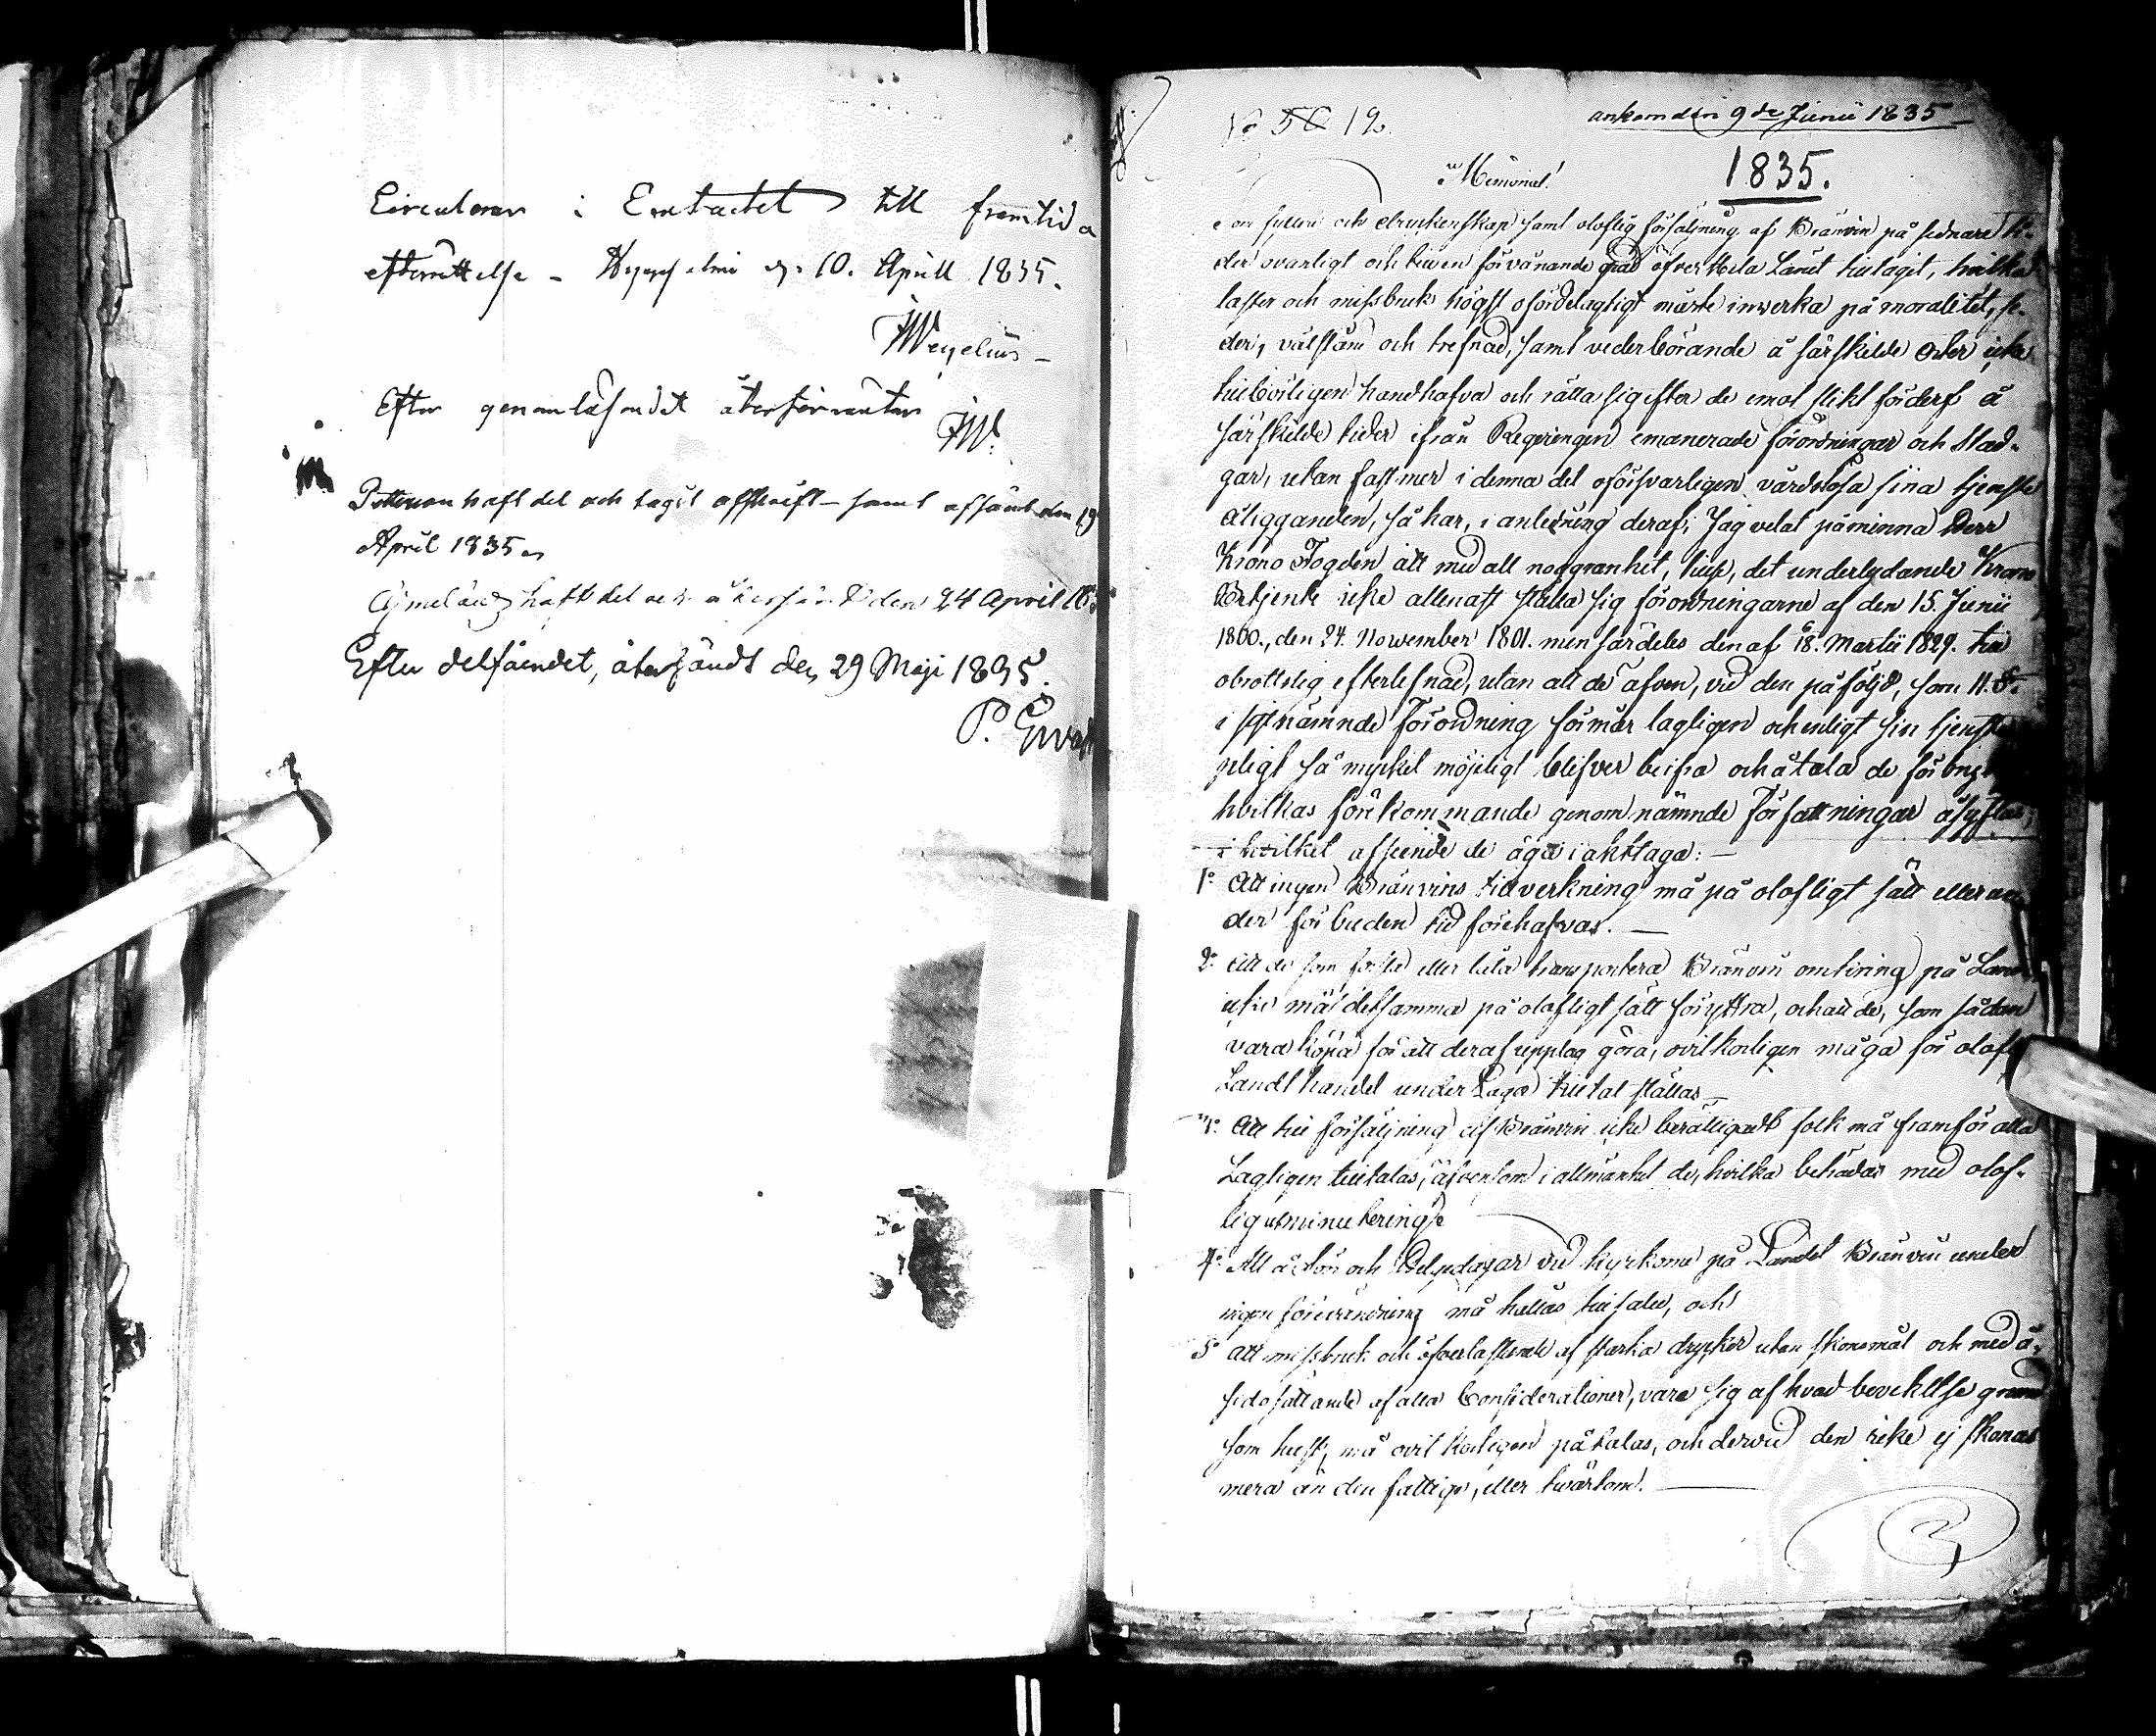 Circuleras i Contractet till framtida
efterrättelse – d. 10. Aprill 1835.
Wegelius –
Efter genomläsandet återförväntas
JW.
Petterson haft del och tagit affskrift – samt afsändt den 19
April 1835.
haft del och återsändt den 24 April 183
Efter delfåendet, återsändt den 29 Maji 1835.
P. Ervast
No 50 19.
ankom den 9de Junii 1835
1835.
Memorial!
som fylleri och dryckenskap samt oloflig försäljning af Bränvin på sednare ti-
der ovanligt och till en förvånande grad öfver hela Länet tilltagit, hvilka
laster och missbruk högst ofördelagtigt måste inwerka på moralitet, se-
der, välstånd och trefnad, samt vederbörande å särskilde orter icke
tillbörligen handhafva och rätta sig efter de emot slikt förderf å
särskilde tider ifrån Regeringen emanerade förordningar och Stad-
gar, utan fastmer i denna del oförsvarligen vårdslösa sina tjenste
åligganden, så har, i anledning deraf, Jag velat påminna Herr
Krono Fogden att med all noggranhet, tillse, det underlydande Krono
Betjente icke allenast ställa sig förordningarne af den 15. Junii
1800., den 24. November 1801. men särdeles den af 18. Martii 1829. till
obrottslig efterlefnad, utan att de äfven, vid den påföljd, som 11. §.
i sistnämnde Förordning förmår lagligen och enligt sin tjenste
pligt så mycket möjeligt blifver beifra och åtala de förbrytelser
hvilkas förekommande genom nämnde Författningar åsyftas,
i hvilket afseende de äga i akttaga: –
1o Att ingen Bränvins tillverkning må på olofligt sätt eller un-
der förbuden tid förehafvas. –
2o Att de som forsla eller låta transportera Bränvin omkring på Landet
icke må detsamma på olofligt sätt föryttra, och att de, som sådan
vara köpa för att deraf upplag göra, ovilkorligen måga för olofl
Landthandel under Laga tilltal ställas –
3o Att till försäljning af Bränvin icke berättigadt folk må framför alla
Lagligen tilltalas, äfvensom i allmänhet de, hvilka beträdas med olof-
lig utminutering.
4o Att å Sön och Helgedagar vid kyrkorne på Landet Bränvin under
ingen förevändning må hållas till salu, och
5o Att missbruk och öfverlastande af starka drycker utan skonsmål och med å-
sidosättande af alla Considerationer, vare sig af hvad bevekelse grund
som helst, må ovilkorligen påtalas, och dervid den rike ej skonas
mera än den fattige, eller tvärtom. –